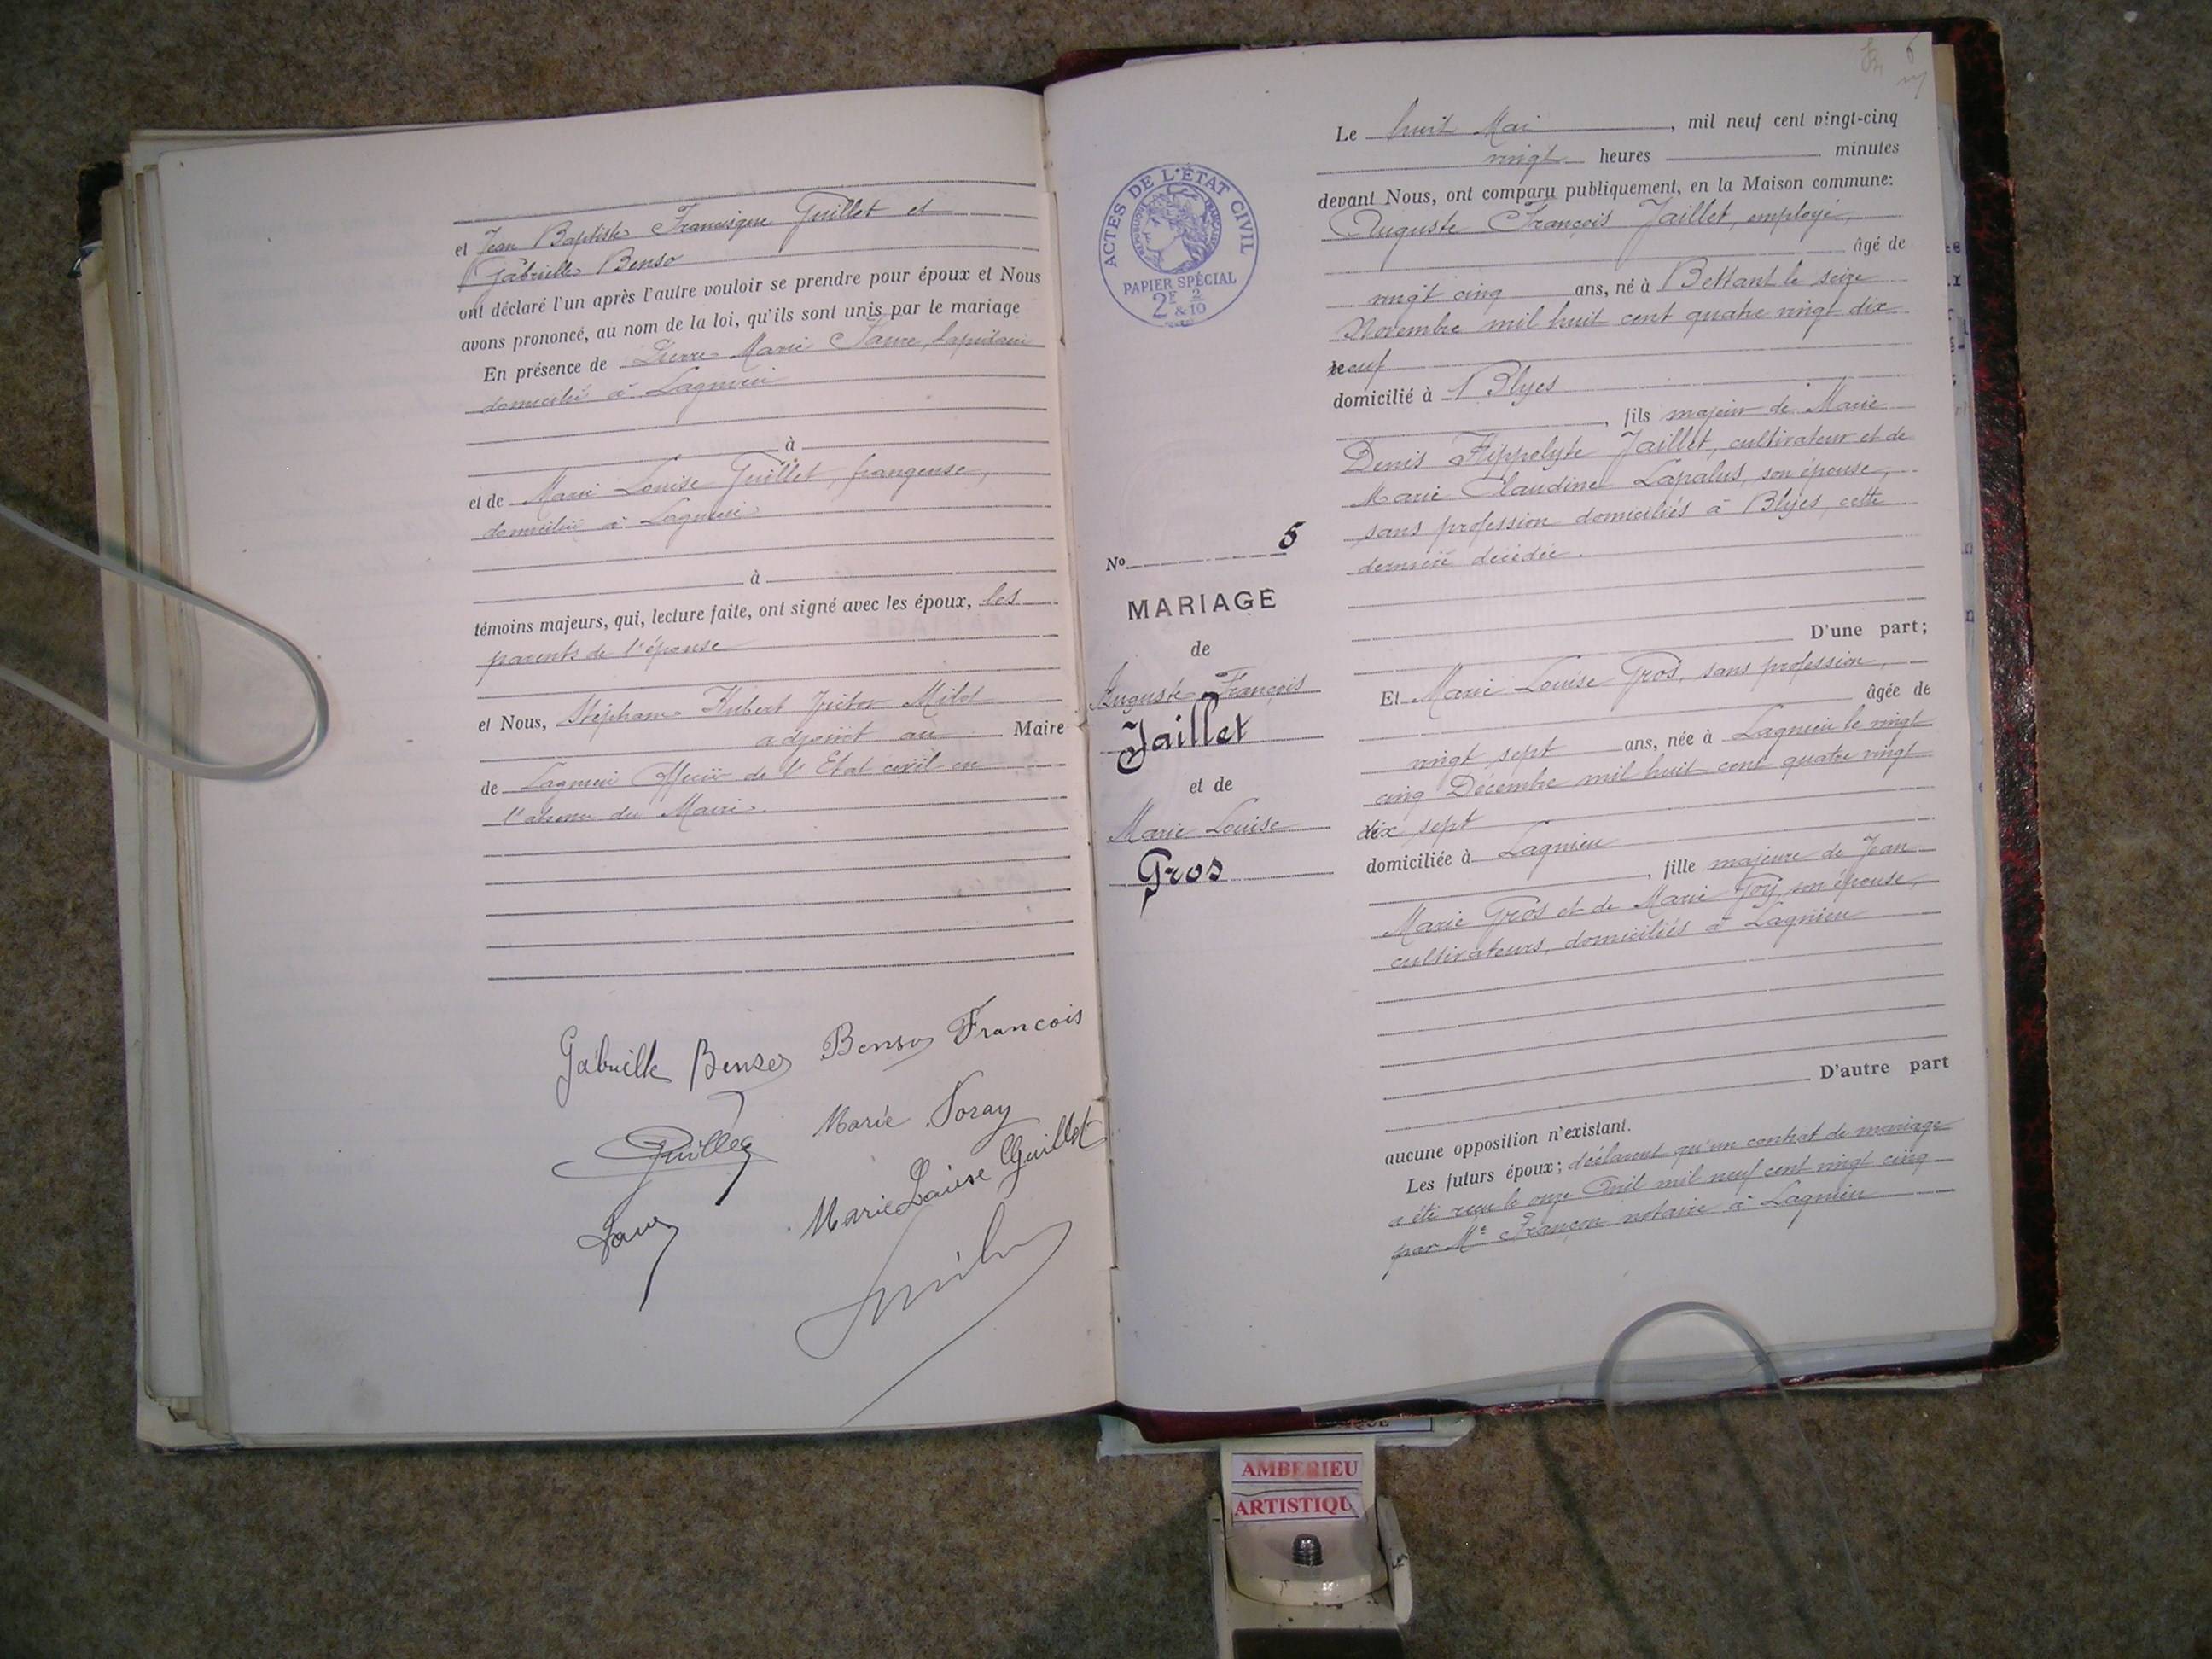 et Jean Baptiste Francisque Guillet et
Gabrielle Benso
ont déclaré l'un après l'autre vouloir se prendre pour époux et Nous
avons prononcé, au nom de la loi, qu'ils sont unis par le mariage
En présence de Pierre Marie
domicilié à Lagnieu
à
et de Marie Louise Guillet, frangeuse,
domiciliée à Lagnieu
à
témoins majeurs, qui, lecture faite, ont signé avec les époux, les
parents de l'épouse
et Nous, Stéphane Hubert Victor Milot
adjoint au Maire
de Lagnieu Officier de l'Etat civil en
l'absence du Maire.
Gabrielle Benso Benso Francois
Guillet Marie
Marie Louise Guillet
ACTES DE L'ÉTAT CIVIL
RÉPUBLIQUE FRANÇAISE
PAPIER SPÉCIAL
2F & 2/10
No 5
MARIAGE
de
Auguste François
Jaillet
et de
Marie Louise
Gros
6
Le huit Mai, mil neuf cent vingt-cinq
vingt heures minutes
devant Nous, ont comparu publiquement, en la Maison commune:
Auguste François Jaillet, employé,
âgé de
vingt cinq ans, né à Bettant le seize
Novembre mil huit cent quatre vingt dix
neuf
domicilié à Blyes
, fils majeur de Marie
Denis Hippolyte Jaillet, cultivateur et de
Marie Claudine Lapalus, son épouse,
sans profession domiciliés à Blyes, cette
dernière décédée.
D'une part;
Et Marie Louise Gros, sans profession,
âgée de
vingt sept ans, née à Lagnieu le vingt
cinq Décembre mil huit cent quatre vingt
dix sept
domiciliée à Lagnieu
, fille majeure de Jean
Marie Gros et de Marie Goy, son épouse,
cultivateurs, domiciliés à Lagnieu
D'autre part
aucune opposition n'existant.
Les futurs époux; déclarent qu'un contrat de mariage
a été reçu le onze Avril mil neuf cent vingt cinq
par Me Françon notaire à Lagnieu
AMBERIEU
ARTISTIQU